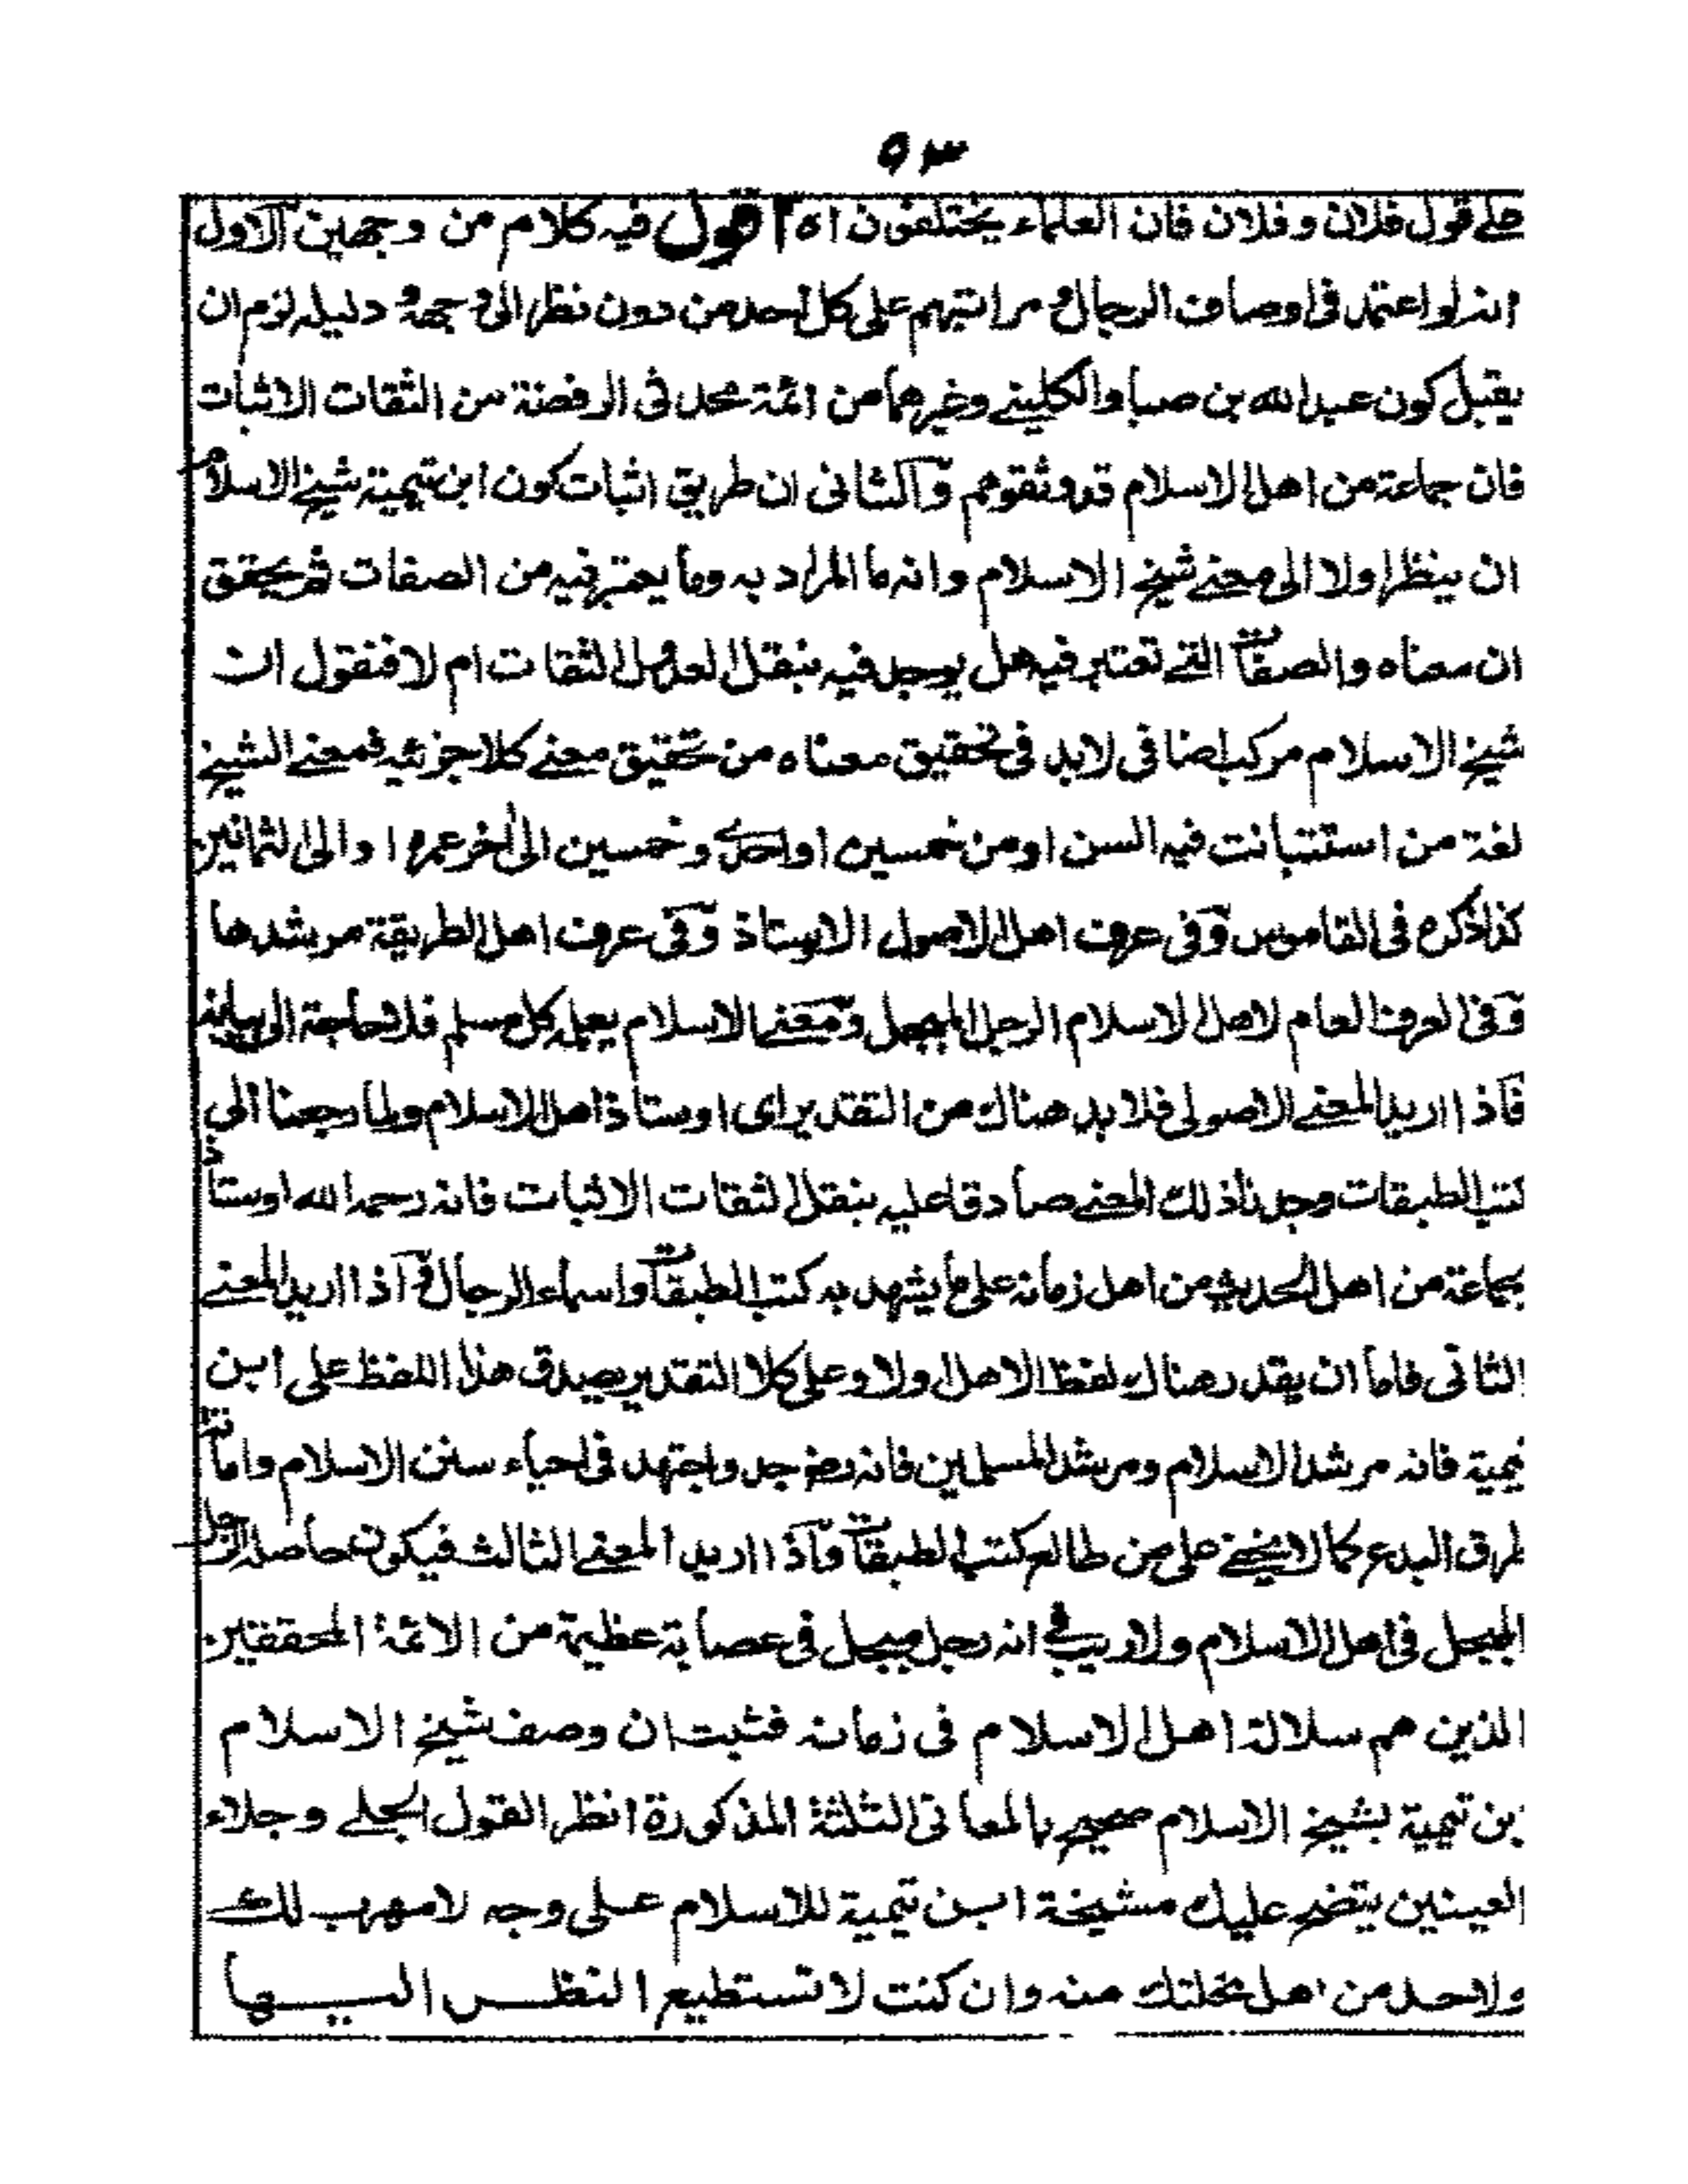 ٥٣
على قول فلان و فلان فان العلماء يختلفون اه اقول فيه كلام من وجهين الاول
انه لو اعتمد فى اوصاف الرجال و مراتبهم على كل احد من دون نظر الى وجهه و دليله لزم ان
يقبل كون عبد الله بن صبا والكلينے وغيرهما من ائمة محدثى الرفضة من الثقات الاثبات
فان جماعة من اهل الاسلام قد وثقوهم والثانى ان طريق اثبات كون ابن تيمية شيخ الاسلام
ان ينظر اولا الى معنے شيخ الاسلام وانه ما المراد به وما يعتبر فيه من الصفات ثم يحقق
ان معناه والصفات التے تعتبر فيه هل يوجد فيه بنقل العدول الثقات ام لا فنقول ان
شيخ الاسلام مركب اضافى لابد فى تحقيق معناه من تحقيق معنے كلا جزئيه فمعنے الشيخ
لغة من استبانت فيه السن او من خمسين او احدى وخمسين الى اخر عمره او الى الثمانين
كذا ذكره فى القاموس وفى عرف اهل الاصول الاوستاذ وفى عرف اهل الطريقة مرشدها
وفى العرف العام لاهل الاسلام الرجل المبجل ومعنے الاسلام يعلمه كل مسلم فلا حاجة الى بيانه
فاذا اريد المعنے الاصولى فلابد هناك من التقدير اى اوستاذ اهل الاسلام ولما رجعنا الى
كتب الطبقات وجدنا ذلك المعنے صادقا عليه بنقل الثقات الاثبات فانه رحمه الله اوستاذ
جماعة من اهل الحديث من اهل زمانه على ما يشهد به كتب الطبقات واسماء الرجال واذا اريد المعنے
الثانى فاما ان يقدر هناك لفظ الاهل اولا وعلى كلا التقدير يصدق هذا اللفظ على ابن
تيمية فانه مرشد الاسلام ومرشد المسلمين فانه رضه جد واجتهد فى احياء سنن الاسلام واماتة
طرق البدع كما لا يخفے على من طالع كتب الطبقات واذا اريد المعنے الثالث فيكون حاصله الرجل
المبجل فى اهل الاسلام ولا ريب فى انه رجل مبجل فى عصابة عظيمة من الائمة المحققين
الذين هم سلالة اهل الاسلام فى زمانه فثبت ان وصف شيخ الاسلام
بن تيمية بشيخ الاسلام صحيح بالمعانى الثلثة المذكورة انظر القول الجلے وجلاء
العينين يتضح عليك مشيخة ابن تيمية للاسلام على وجه لا مهرب لك
ولا احد من اهل نحلتك منه وان كنت لا تستطيع النظر اليها